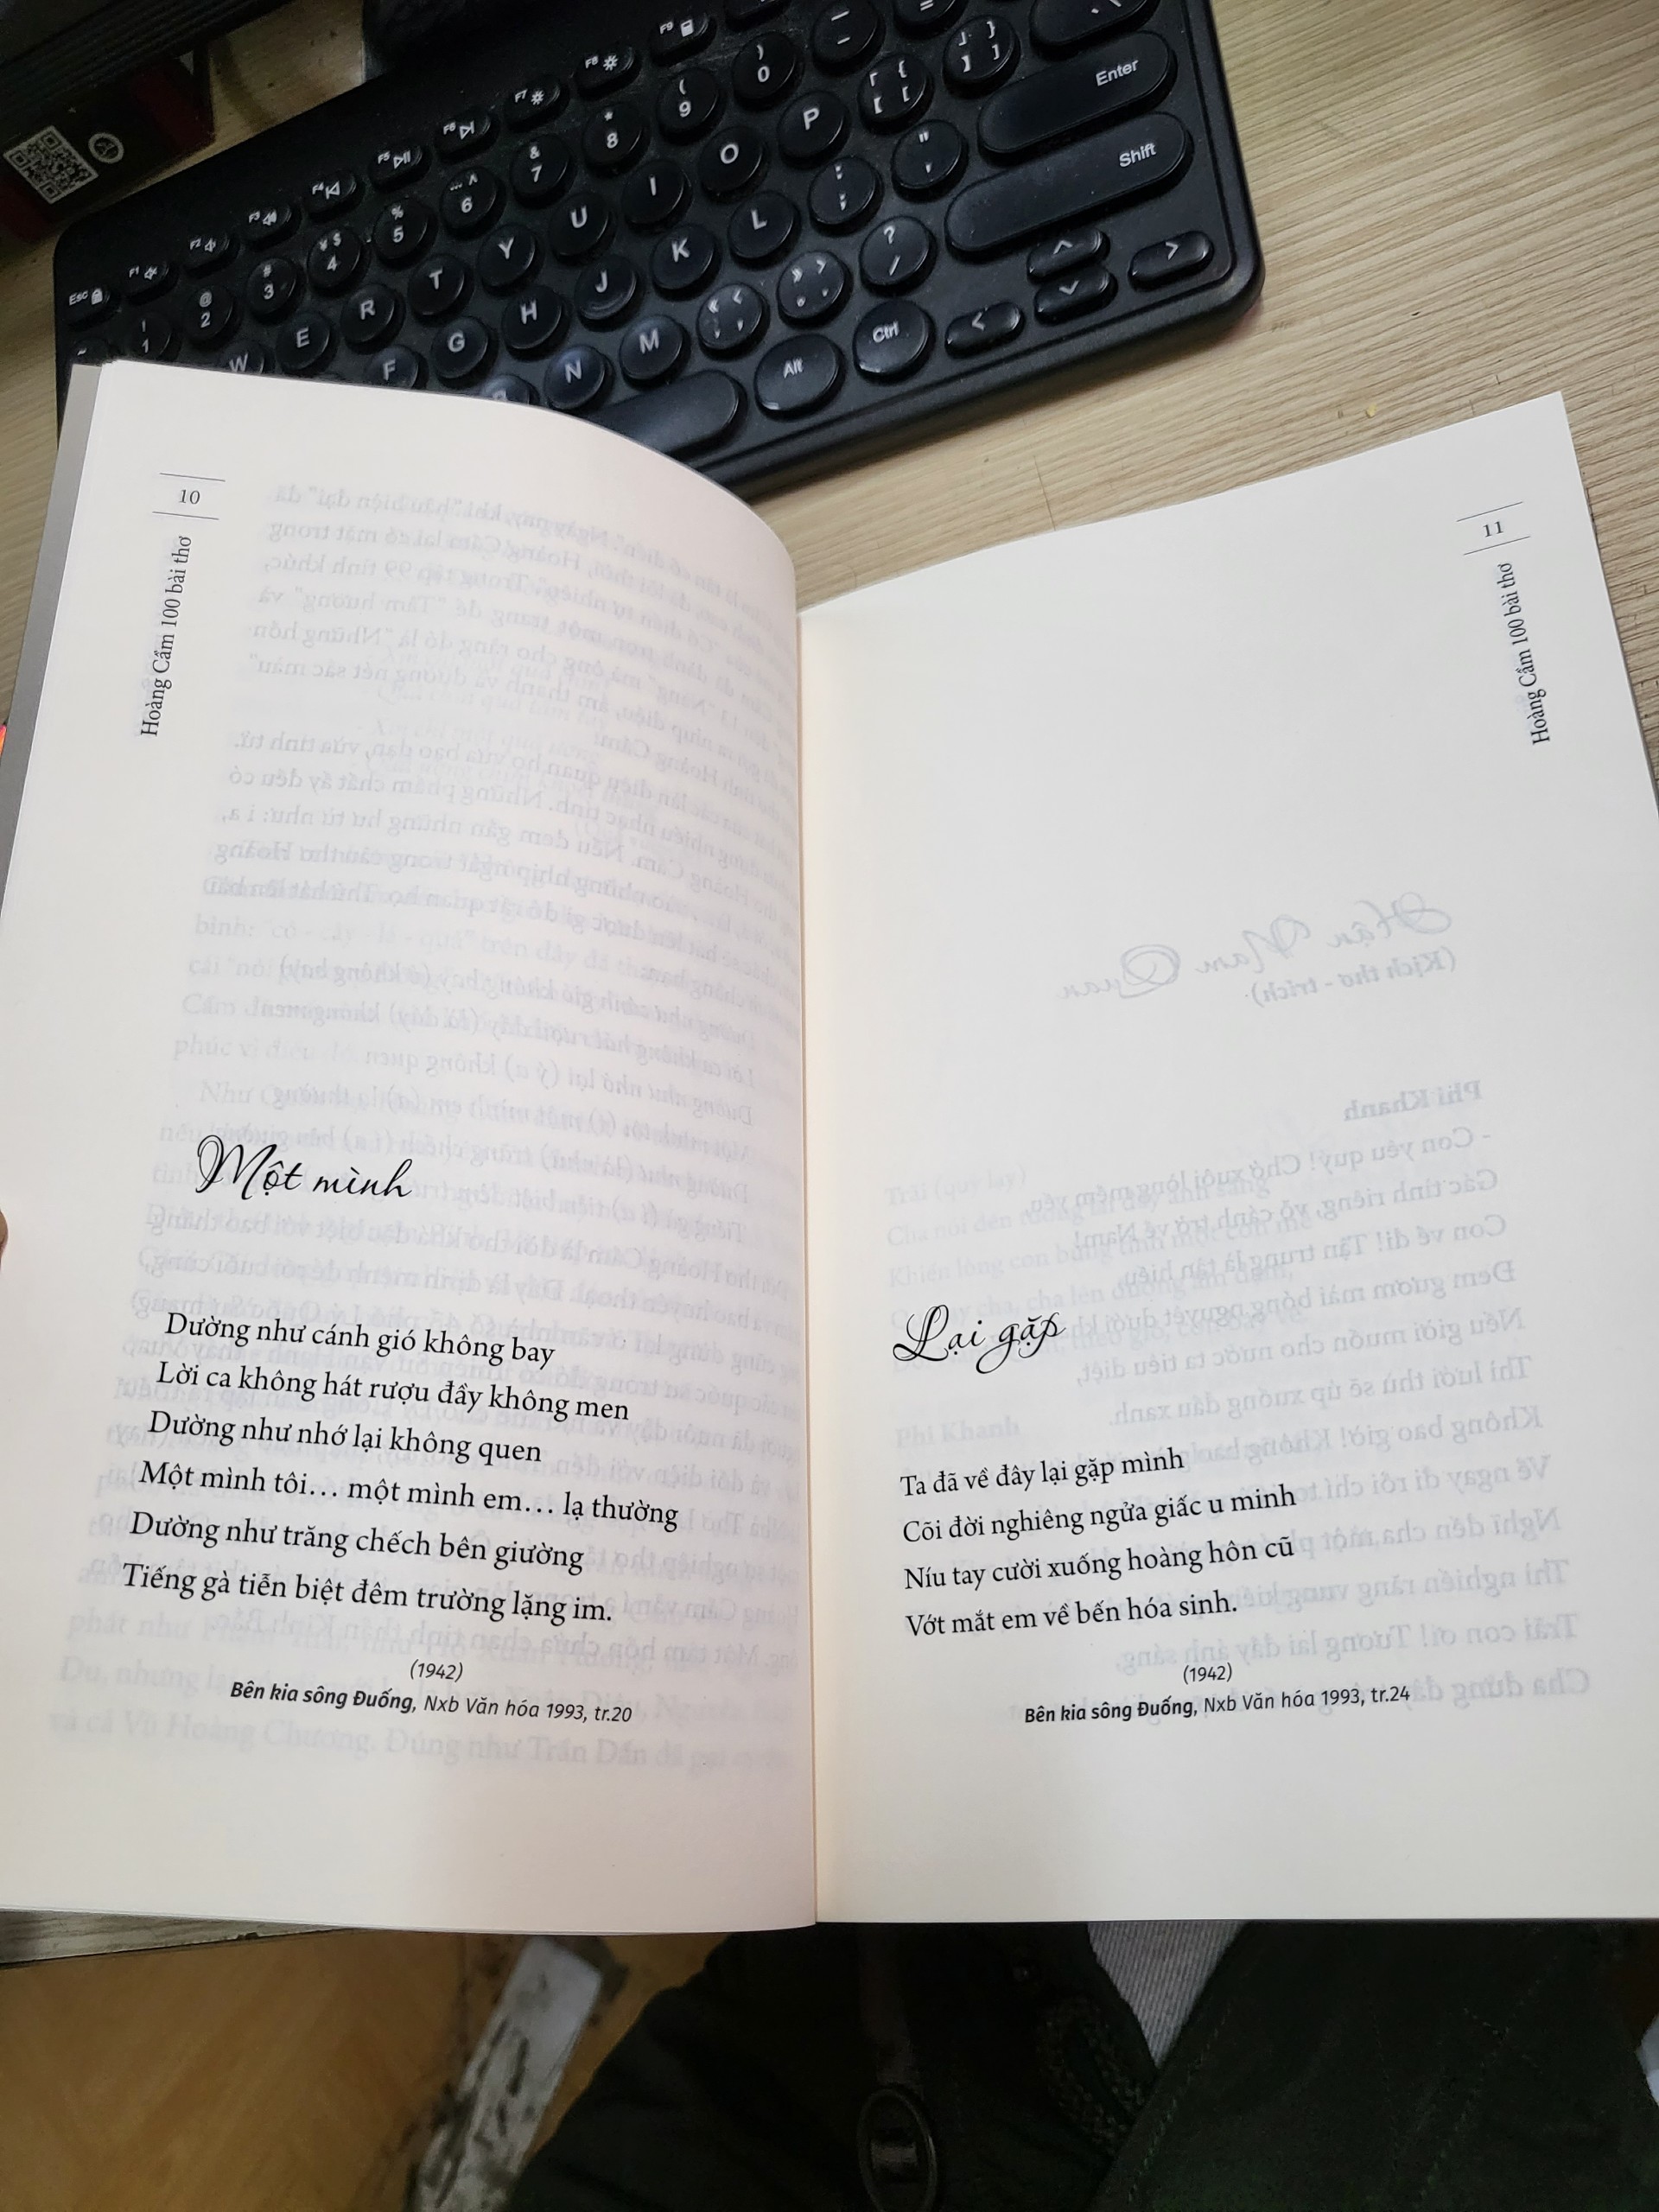 Esc
F1
F2
F3
F4
F5
F6
F7
F8
F9
! 1
@ 2
# 3
¥ $ 4
% 5
... ^ 6
& 7
* 8
( 9
) 0
W E R T Y U I O P
Enter
F G H J K L
Shift
N M
? /
Alt
Ctrl
10
Hoàng Cầm 100 bài thơ
Một mình
Dường như cánh gió không bay
Lời ca không hát rượu đầy không men
Dường như nhớ lại không quen
Một mình tôi… một mình em… lạ thường
Dường như trăng chếch bên giường
Tiếng gà tiễn biệt đêm trường lặng im.
(1942)
Bên kia sông Đuống, Nxb Văn hóa 1993, tr.20
11
Hoàng Cầm 100 bài thơ
Lại gặp
Ta đã về đây lại gặp mình
Cõi đời nghiêng ngửa giấc u minh
Níu tay cười xuống hoàng hôn cũ
Vớt mắt em về bến hóa sinh.
(1942)
Bên kia sông Đuống, Nxb Văn hóa 1993, tr.24